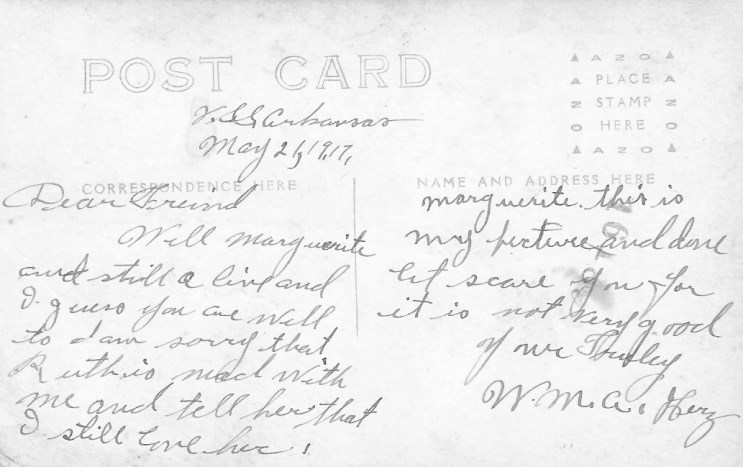 POST CARD
A Z O
PLACE
STAMP
HERE
A Z O
U.S.S. Arkansas
May 21, 1917,
CORRESPONDENCE HERE
Dear Freind
Well marguerite
and still a live and
I guess you are well
to I am sorry that
Ruth is mad with
me and tell her that
I still love her.
NAME AND ADDRESS HERE
marguerite. this is
my picture and done
let scare you for
it is not very good
your Truley
W. M. A. Herz